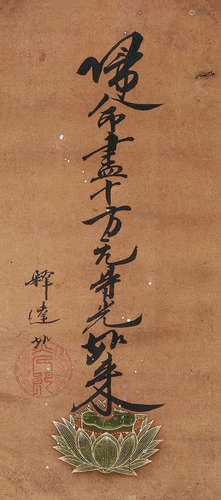 歸命盡十方无㝵光如来
釋達如